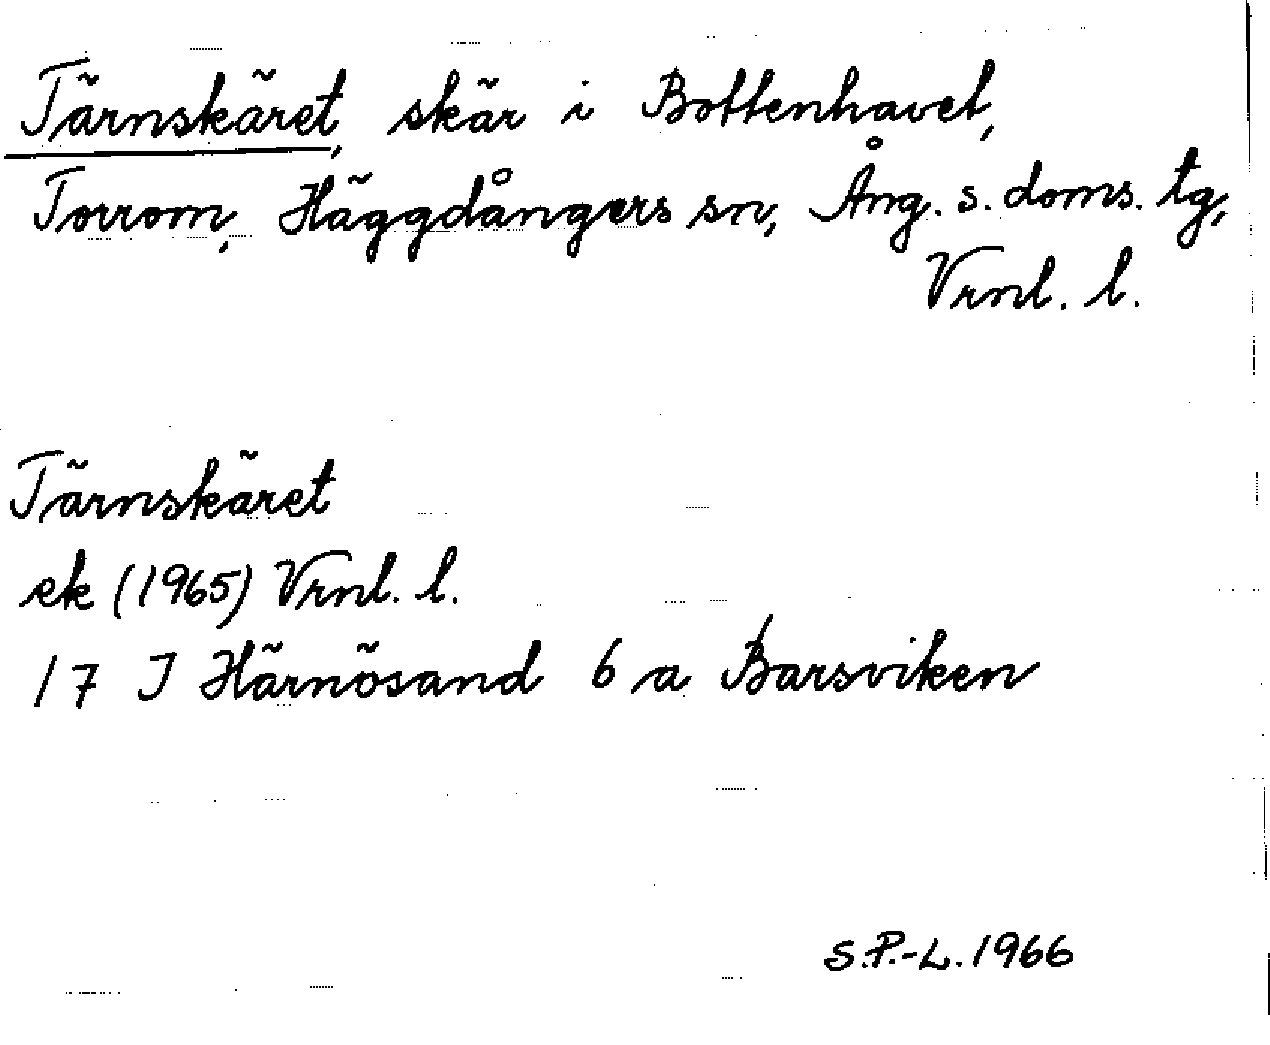 Tärnskäret, skär i Bottenhavet,
Torrom, Häggdångers sn, Ång. s. doms. tg,
Vrnl. l.
Tärnskäret
ek (1965) Vrnl. l.
17 J Härnösand 6 a Barsviken
S.P.-L. 1966